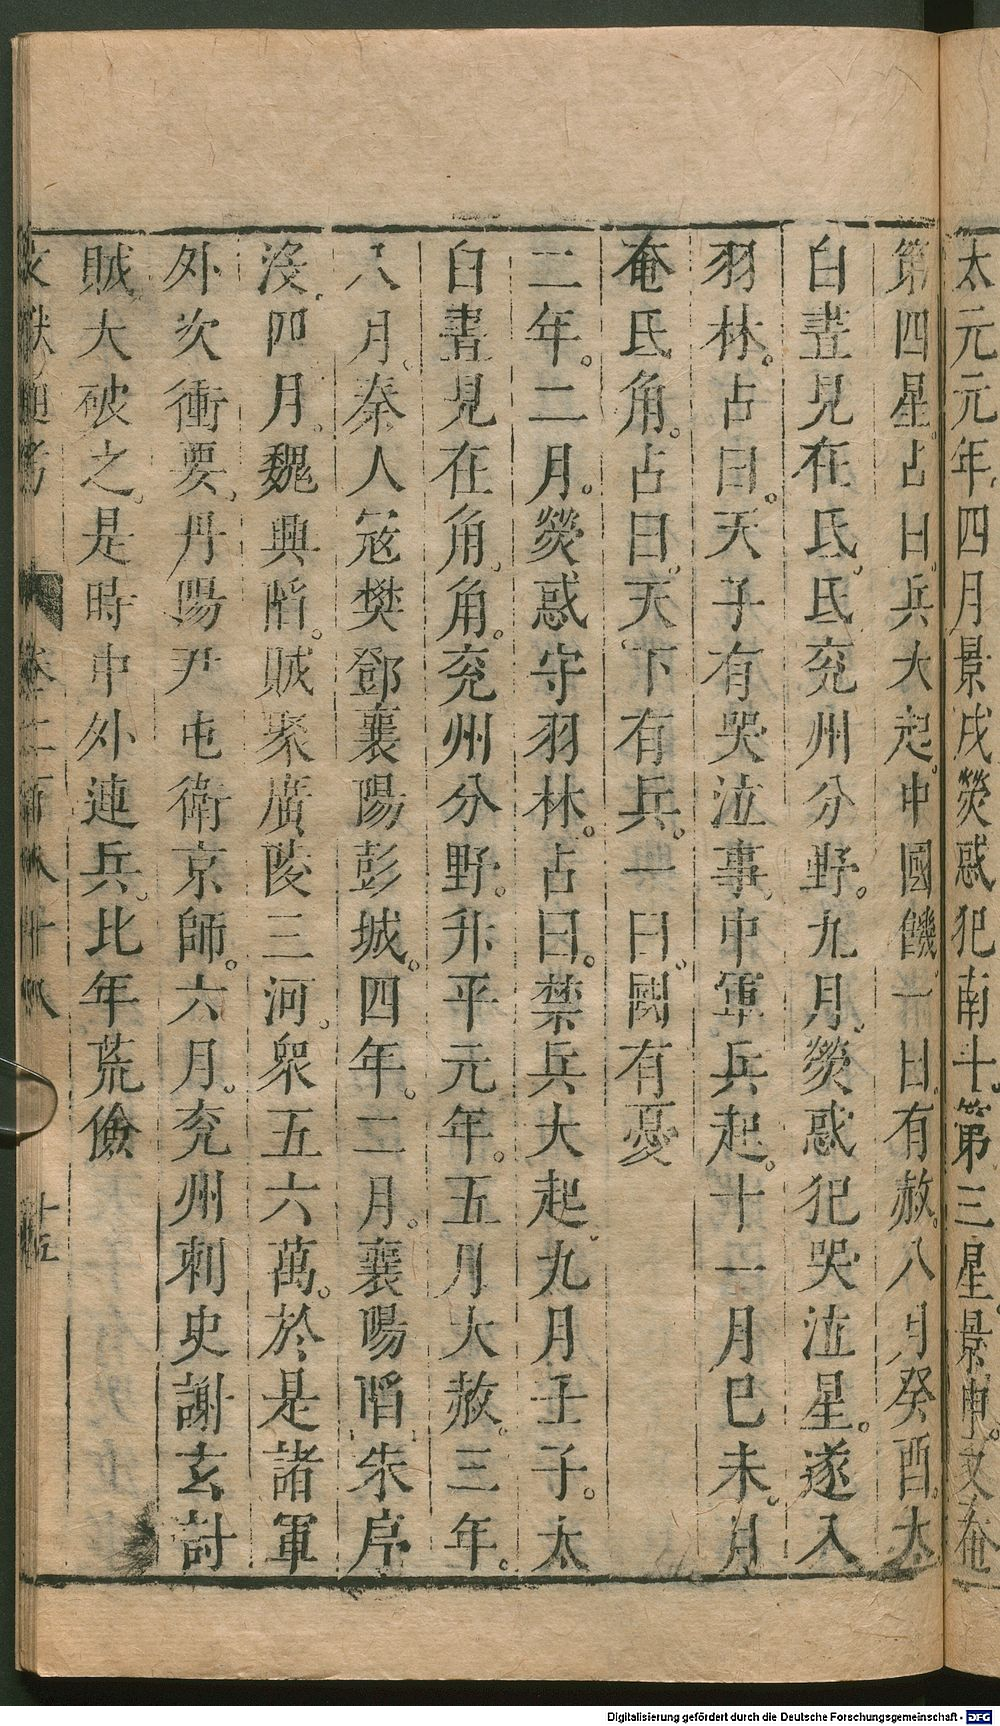 太元元年。四月景戌熒惑犯南斗第三星。景申。又奄
第四星。占曰。兵大起。中國饑。一曰。有赦。八月癸酉。太
白晝見在氐。氐兖州分野。九月。熒惑犯哭泣星。遂入
羽林。占曰。天子有哭泣事。中軍兵起。十一月巳未。月
奄氐角。占曰。天下有兵。一曰。國有憂
二年。二月。熒惑守羽林。占曰。禁兵大起。九月壬子。太
白晝見在角。角。兖州分野。升平元年。五月大赦。三年。
八月。秦人寇樊鄧襄陽彭城。四年。二月。襄陽陷朱序
沒。四月。魏興陷。賊聚廣陵三河。衆五六萬。於是諸軍
外次衝要。丹陽尹屯衛京師。六月。兖州刺史謝玄討
賊大破之。是時中外連兵。比年荒儉
文獻通考 卷二百八十八 十五
Digitalisierung gefördert durch die Deutsche Forschungsgemeinschaft - DFG